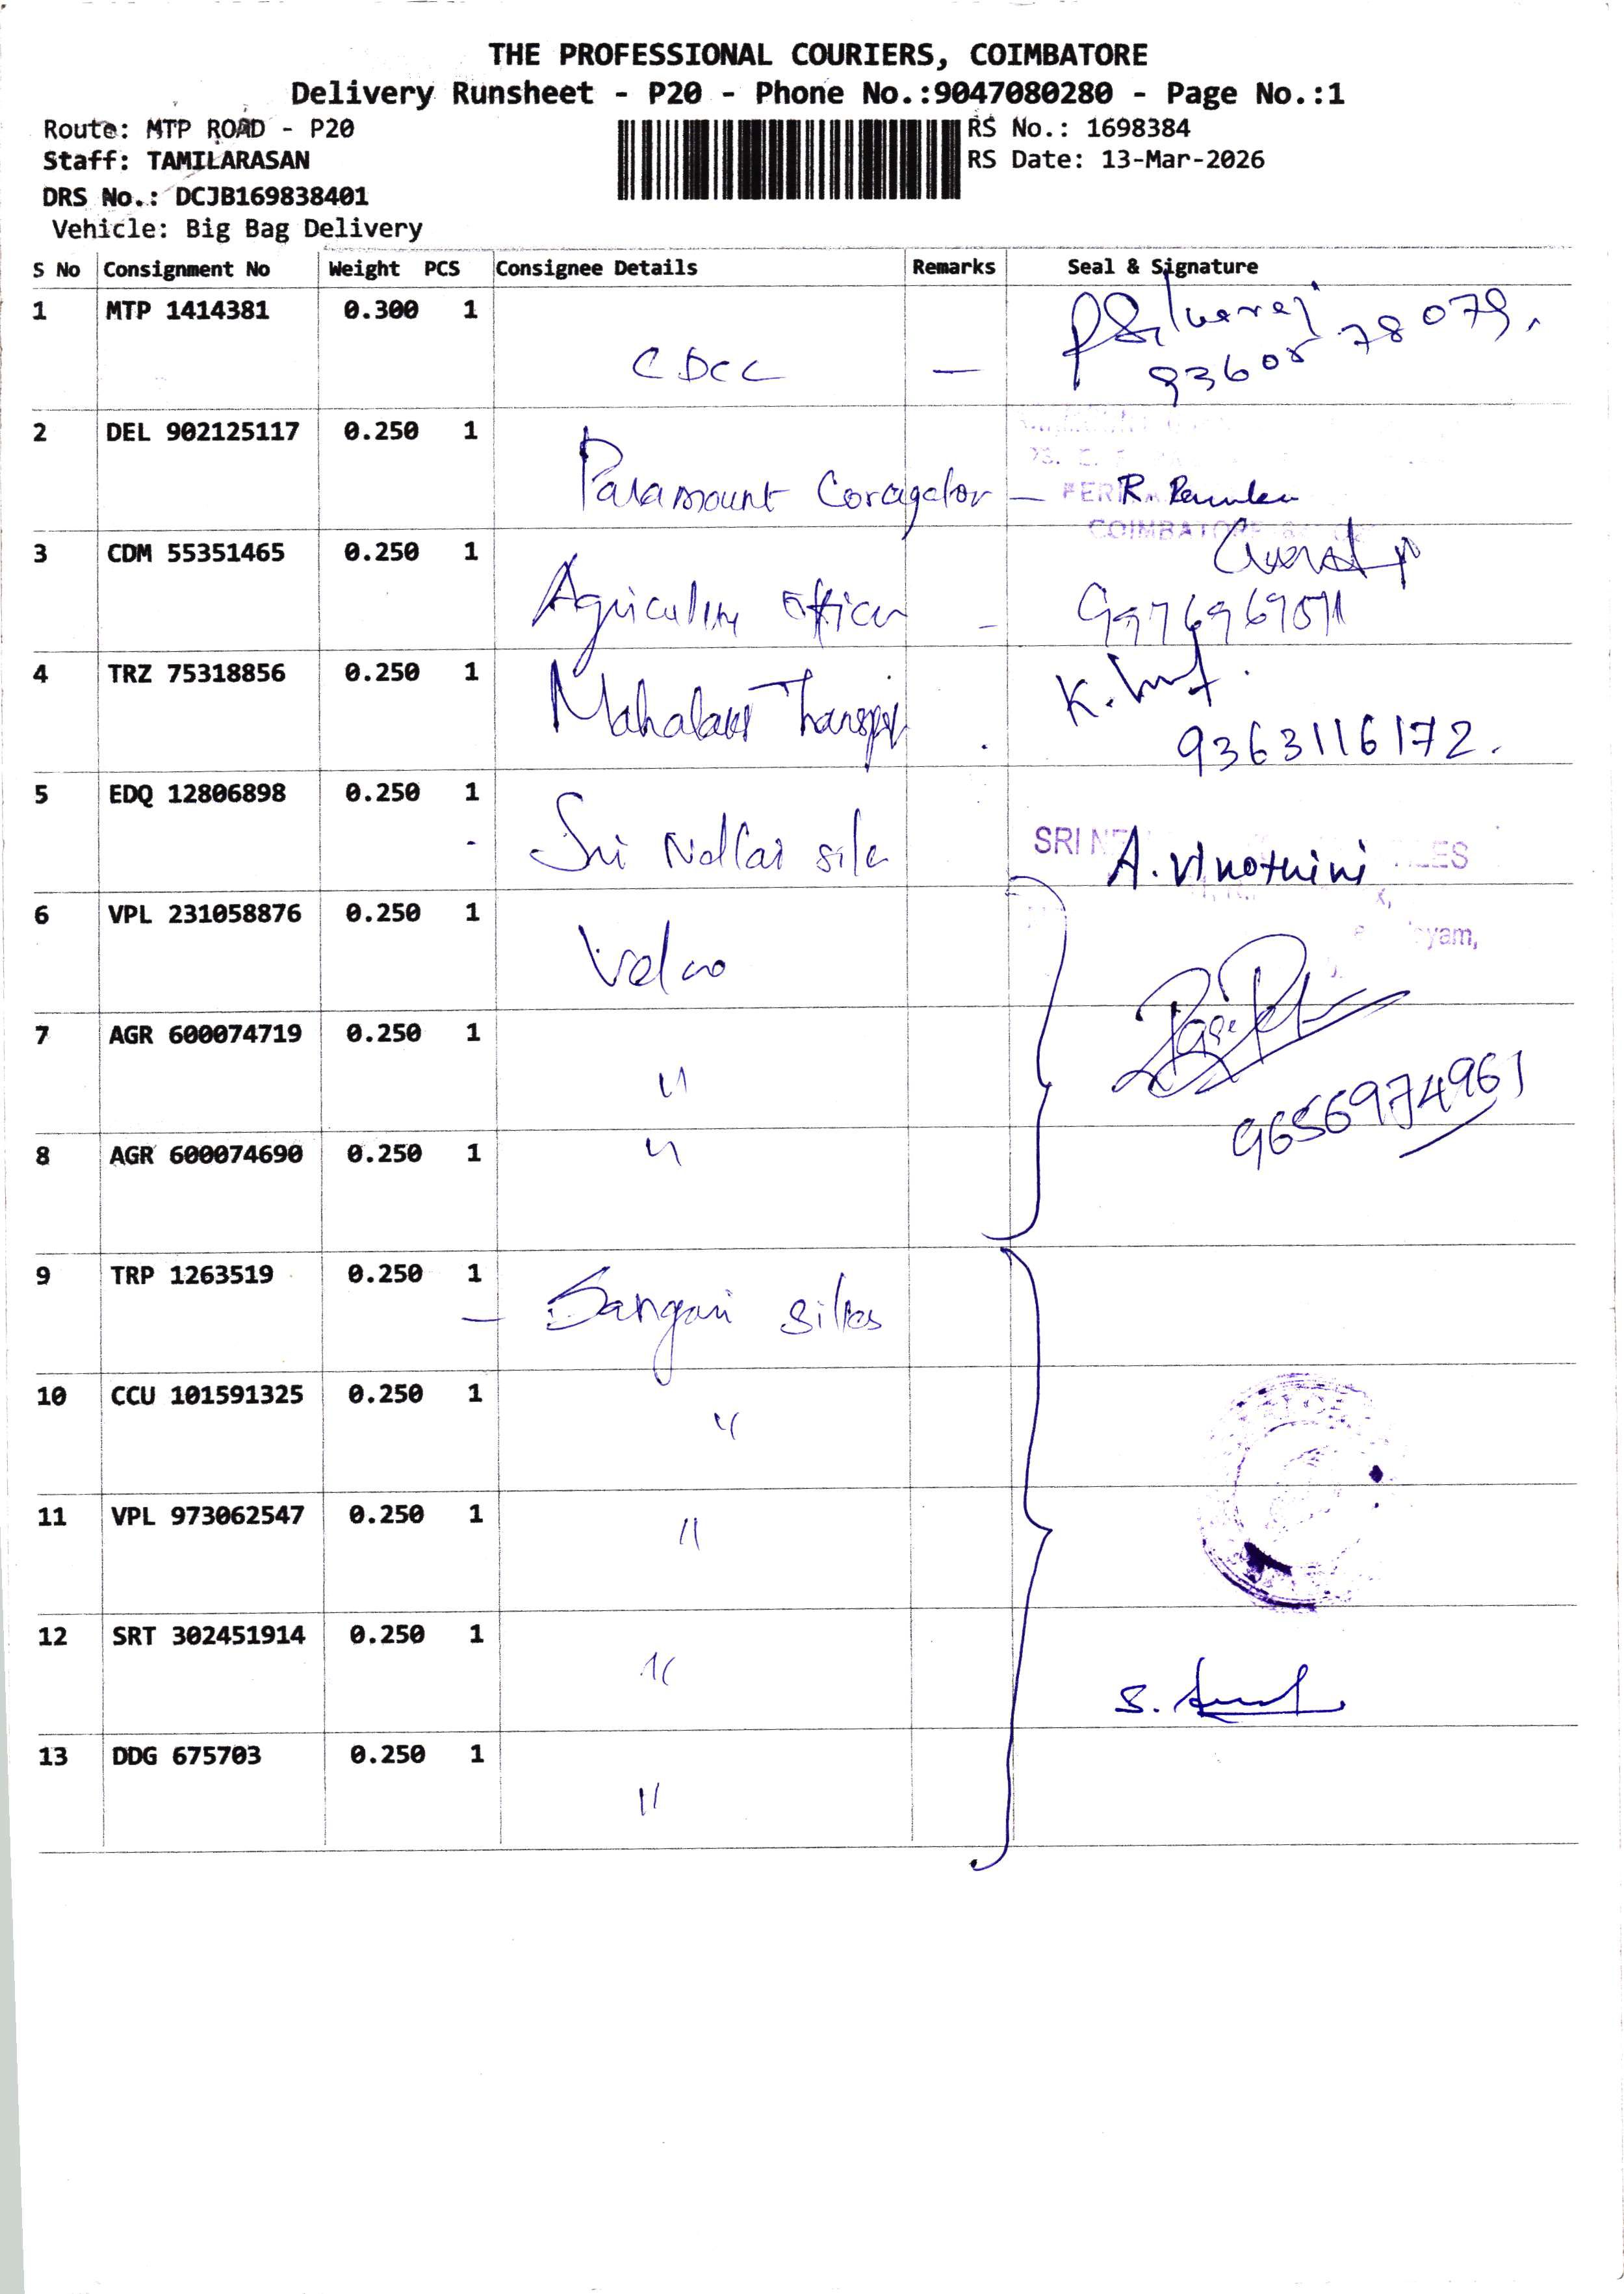 THE PROFESSIONAL COURIERS, COIMBATORE
Delivery Runsheet - P20 - Phone No.:9047080280 - Page No.:1
Route: MTP ROAD - P20
RS No.: 1698384
Staff: TAMILARASAN
RS Date: 13-Mar-2026
DRS No.: DCJB169838401
Vehicle: Big Bag Delivery
S No Consignment No Weight PCS Consignee Details Remarks Seal & Signature
1 MTP 1414381 0.300 1
CDCC —
93608 78079.
2 DEL 902125117 0.250 1
Paramount Coragator — R.
COIMBATORE
3 CDM 55351465 0.250 1
Agriculture officer -
4 TRZ 75318856 0.250 1
K.
9363116172.
5 EDQ 12806898 0.250 1
Sri
SRI A. Vinothini
6 VPL 231058876 0.250 1
yam,
7 AGR 600074719 0.250 1
"
9656974961
8 AGR 600074690 0.250 1
"
9 TRP 1263519 0.250 1
— Sangari silks
10 CCU 101591325 0.250 1
"
11 VPL 973062547 0.250 1
"
12 SRT 302451914 0.250 1
"
S.
13 DDG 675703 0.250 1
"